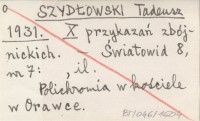 SZYDŁOWSKI Tadeusz
1931. X przykazań zbój-
nickich. – Światowid 8,
nr 7: , il.
Polichromia w kościele
w Orawce.
BJ/046/1604